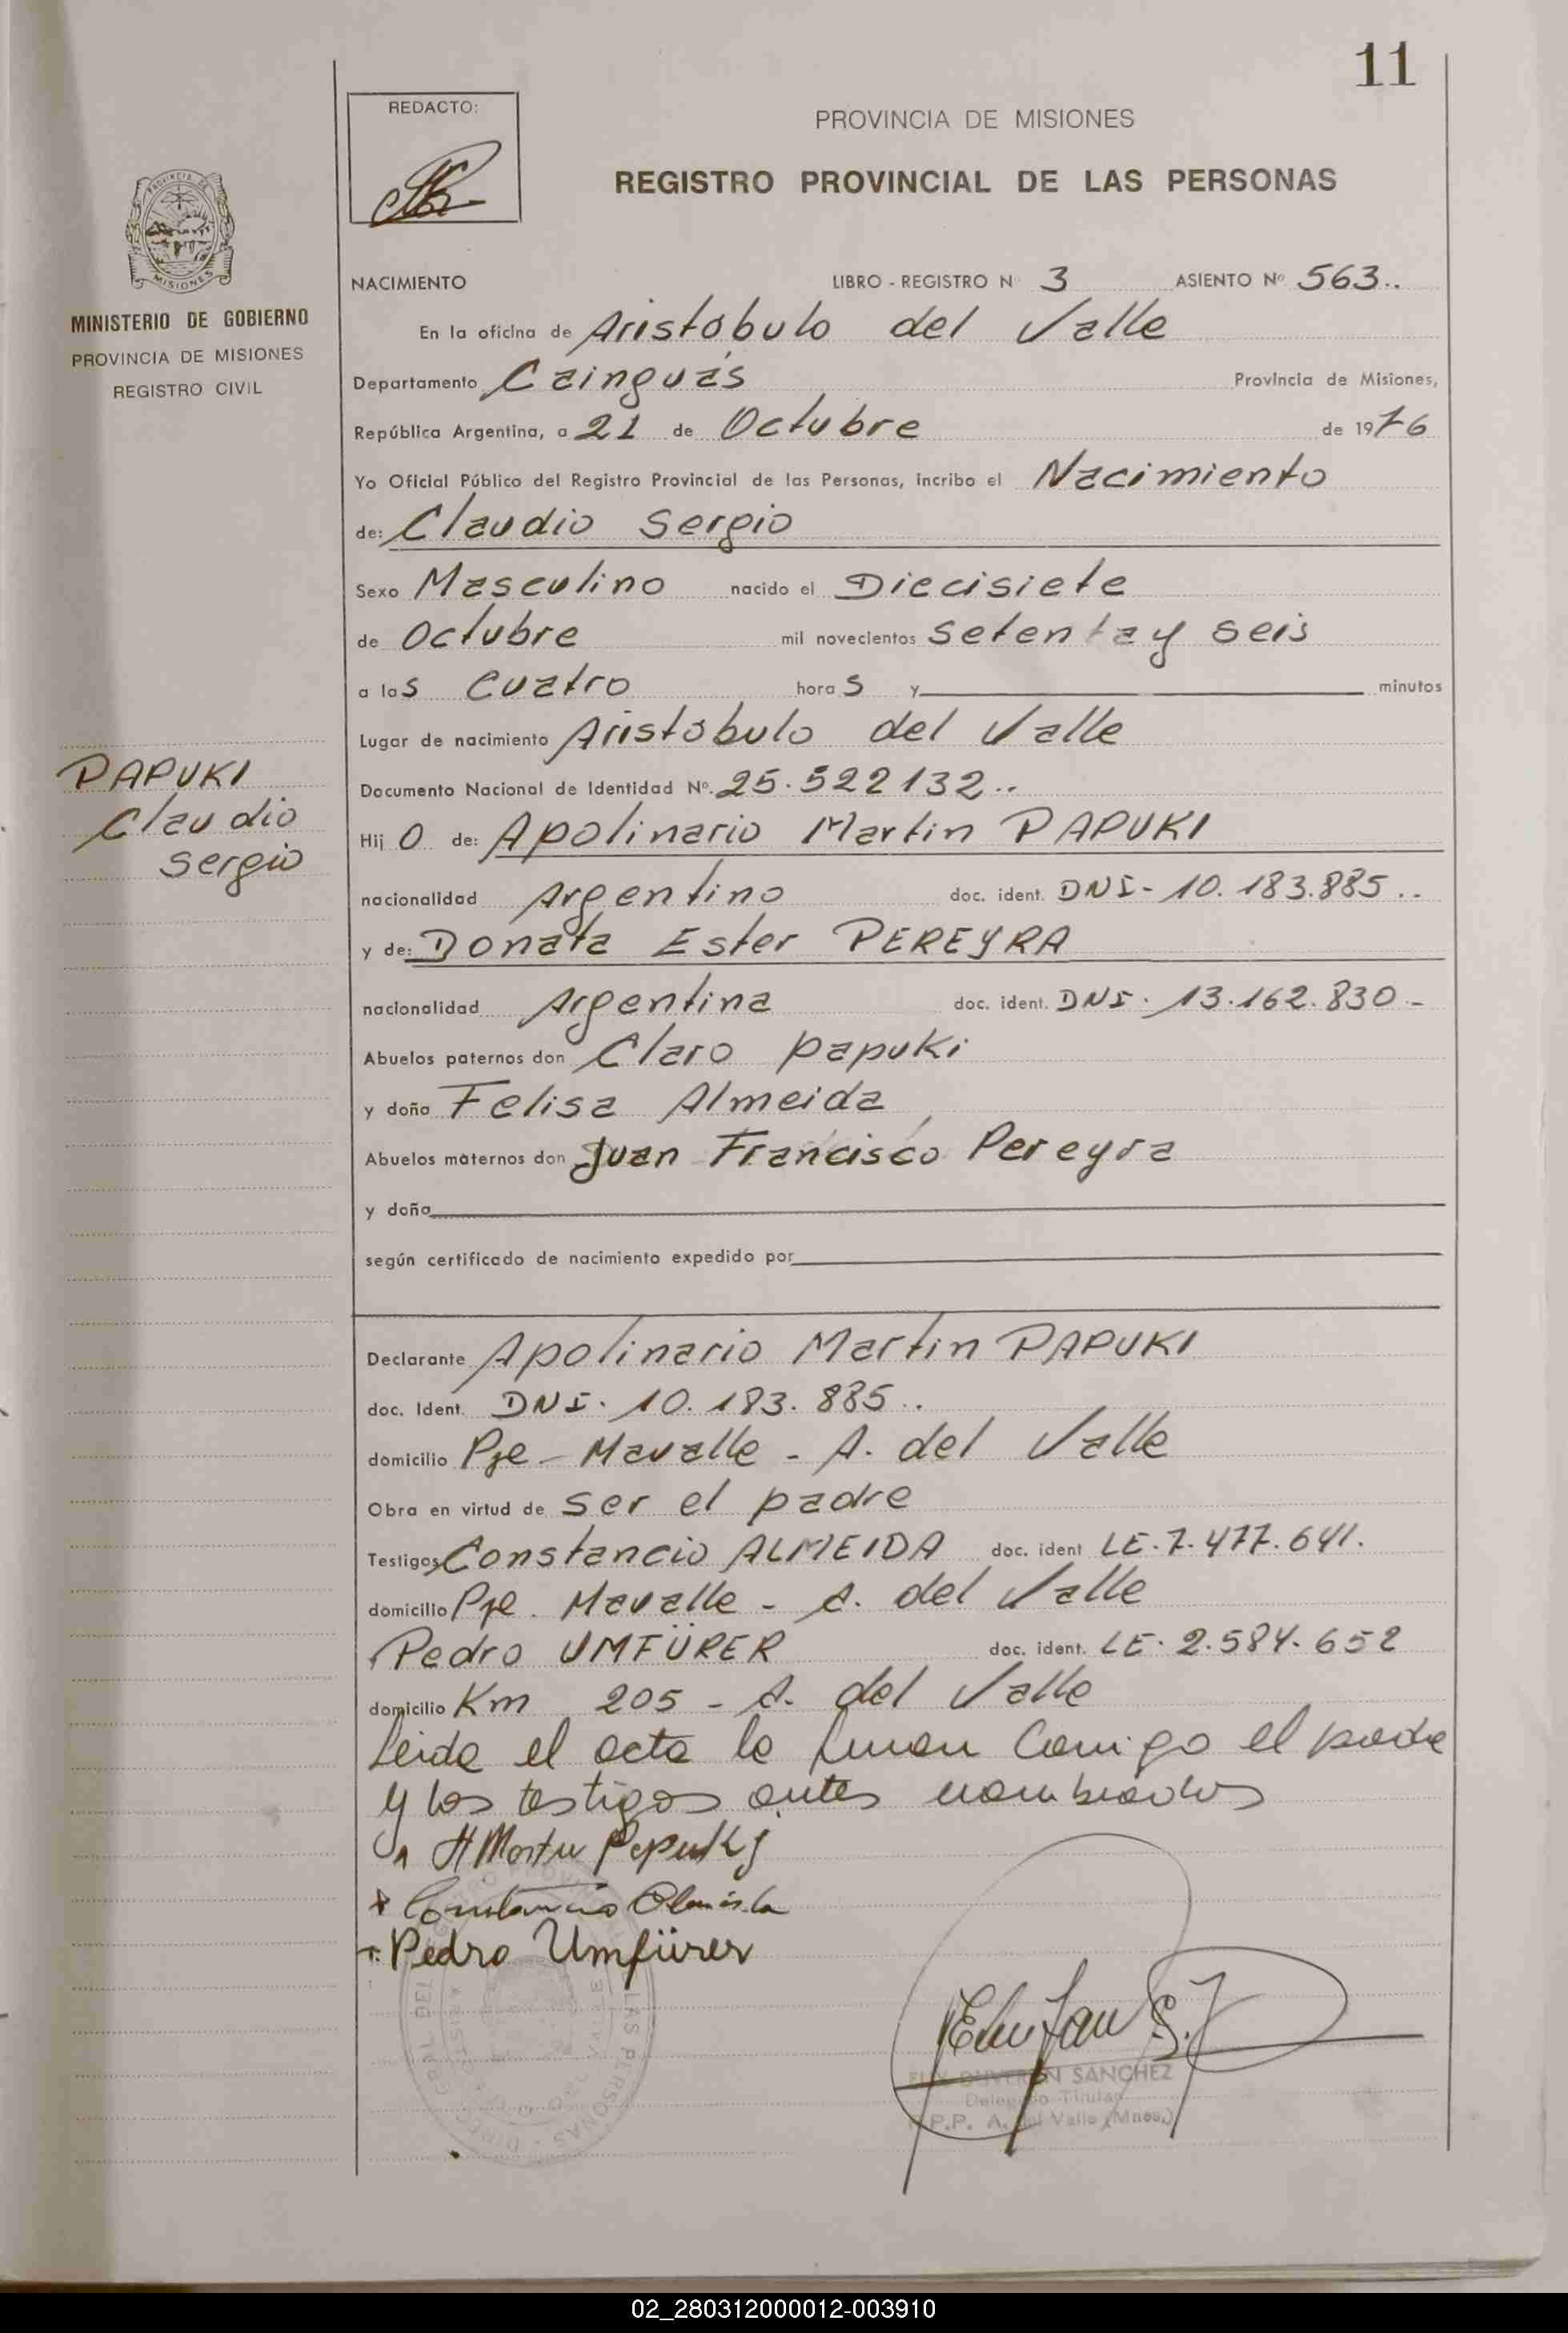 11
REDACTO:
PROVINCIA DE MISIONES
REGISTRO PROVINCIAL DE LAS PERSONAS
PROVINCIA DE
MISIONES
MINISTERIO DE GOBIERNO
PROVINCIA DE MISIONES
REGISTRO CIVIL
NACIMIENTO LIBRO - REGISTRO Nº 3 ASIENTO Nº 563..
En la oficina de Aristóbulo del Valle
Departamento Cainguás Provincia de Misiones,
República Argentina, a 21 de Octubre de 1976
Yo Oficial Público del Registro Provincial de las Personas, incribo el Nacimiento
de: Claudio Sergio
Sexo Masculino nacido el Diecisiete
de Octubre mil novecientos setenta y seis
a las cuatro horas y minutos
Lugar de nacimiento Aristóbulo del Valle
PAPUKI
Claudio
Sergio
Documento Nacional de Identidad Nº. 25.522132..
Hijo de: Apolinario Martin PAPUKI
nacionalidad Argentino doc. ident. DNI- 10.183.885..
y de: Donata Ester PEREYRA
nacionalidad Argentina doc. ident. DNI. 13.162.830.-
Abuelos paternos don Claro Papuki
y doña Felisa Almeida
Abuelos maternos don Juan Francisco Pereyra
y doña
según certificado de nacimiento expedido por
Declarante Apolinario Martin PAPUKI
doc. Ident. DNI. 10.183.885..
domicilio Pje - Mavalle - A. del Valle
Obra en virtud de ser el padre
Testigos Constancio ALMEIDA doc. ident LE.7.477.641.
domicilio Pje. Mavalle - A. del Valle
Pedro UMFÜRER doc. ident. LE. 2.584.652
domicilio Km 205 - A. del Valle
Leida el acta la firman Conmigo el padre
y los testigos antes nombrados
Martin Papuki
Constancio Almeida
Pedro Umfürer
SANCHEZ
Delegado Titular
R.P.P. A. del Valle (Mnes.)
02_280312000012-003910